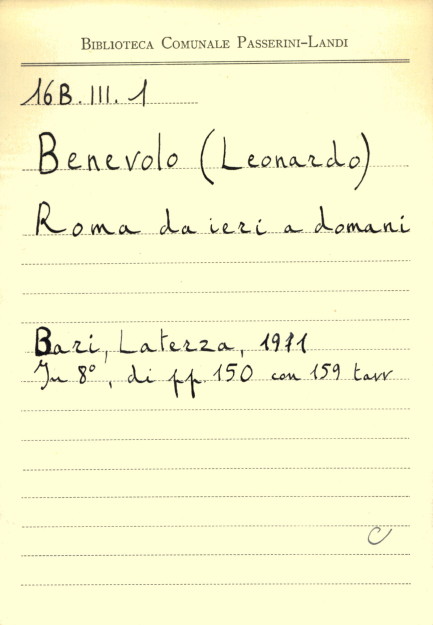 BIBLIOTECA COMUNALE PASSERINI-LANDI
16B.III.1
Benevolo (Leonardo)
Roma da ieri a domani
Bari, Laterza, 1971
In 8°, di pp. 150 con 159 tavv
C